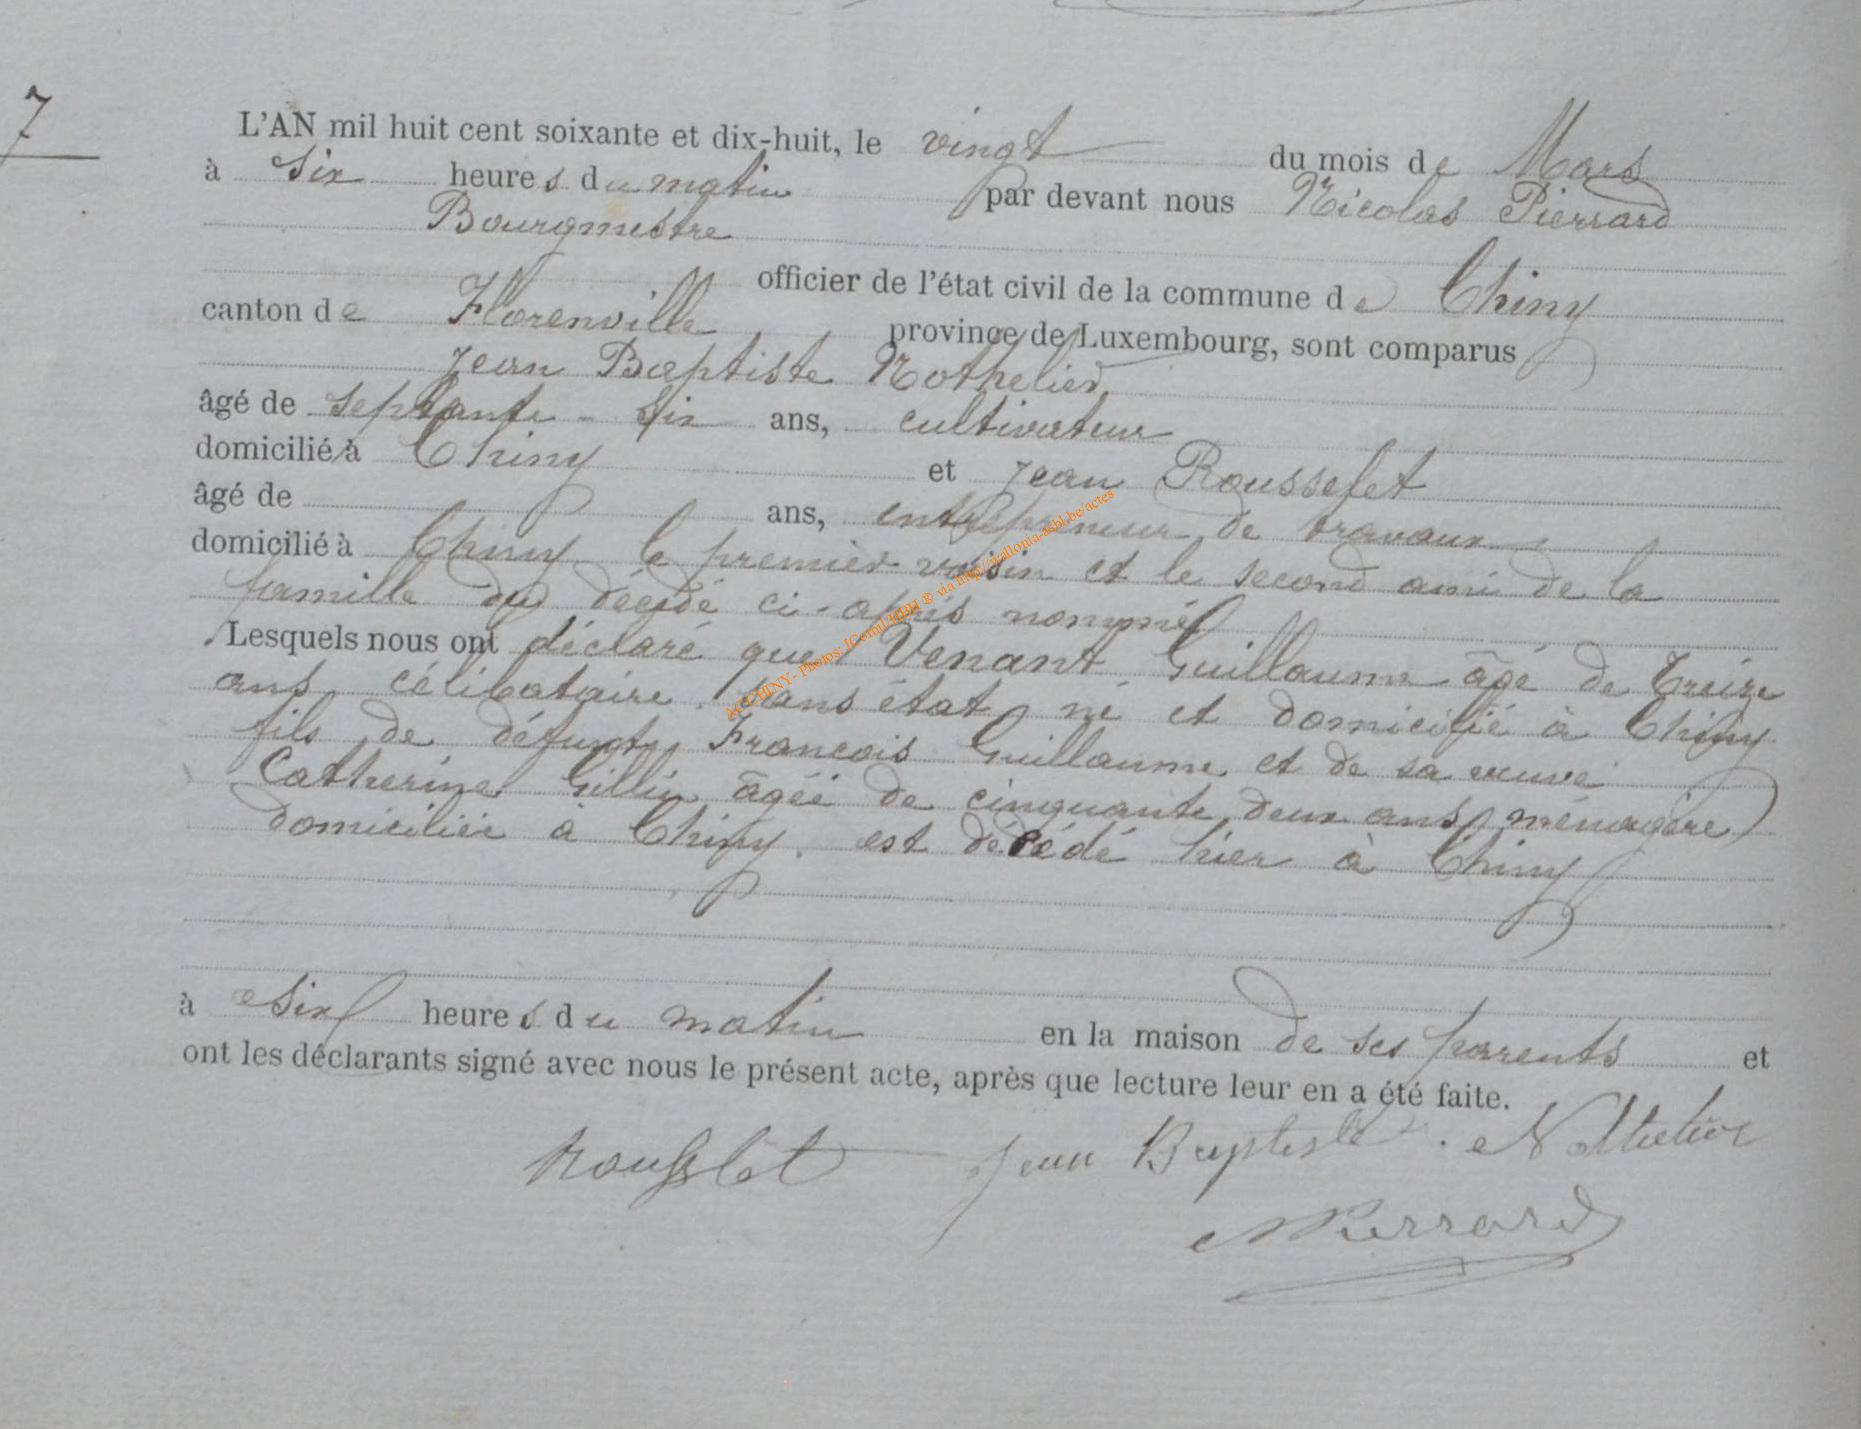 7
L'AN mil huit cent soixante et dix-huit, le vingt du mois de Mars
à six heures du matin par devant nous Nicolas Pierrard
Bourgmestre
officier de l'état civil de la commune de Chiny
canton de Florenville province de Luxembourg, sont comparus
Jean Baptiste Nothelier
âgé de septante-six ans, cultivateur
domicilié à Chiny et Jean Rousselet
âgé de ans, entrepreneur de travaux
domicilié à Chiny le premier voisin et le second ami de la
famille du décédé ci-après nommé
Lesquels nous ont déclaré que Venant Guillaume âgé de treize
ans, célibataire, sans état, né et domicilié à Chiny
fils de défunt François Guillaume et de sa veuve
Catherine Gillin âgée de cinquante deux ans, ménagère,
domiciliée à Chiny, est décédé hier à Chiny
à six heures du matin en la maison de ses parents et
ont les déclarants signé avec nous le présent acte, après que lecture leur en a été faite.
Rousslet Jean Baptiste Nothelier
NPierrard
ACCHINY - Photos: via http://wallonia-asbl.be/actes